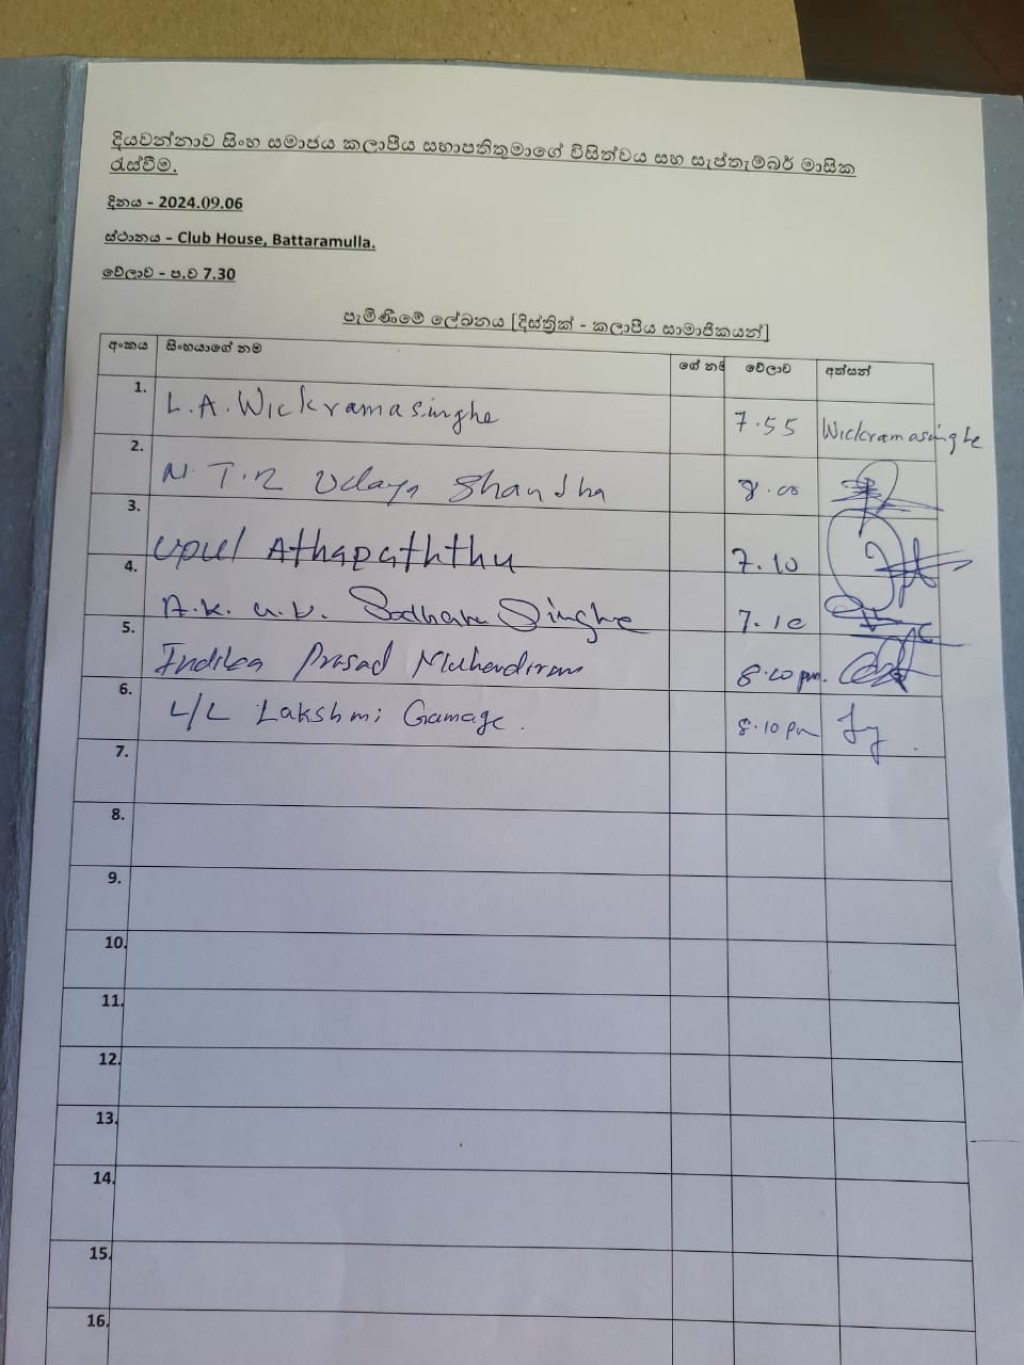 දියවන්නාව සිංහ සමාජය කලාපීය සභාපතිතුමාගේ විසිත්වය සහ සැප්තැම්බර් මාසික
රැස්වීම.
දිනය - 2024.09.06
ස්ථානය - Club House, Battaramulla.
වේලාව - ප.ව 7.30
පැමිණීමේ ලේඛනය [දිස්ත්‍රික් - කලාපීය සාමාජිකයන්]
අංකය සිංහයාගේ නම ගේ නම වේලාව අත්සන්
1. L.A. Wickramasinghe 7.55 Wickramasinghe
2. N.T.R Udaya Shandha 8.00
3. Upul Athapaththu 7.10
4. A.K. Singhe 7.10
5. Indika Prasad Muhandiram 8.20 pm.
6. L/L Lakshmi Gamage. 8.10 pm
7.
8.
9.
10.
11.
12.
13.
14.
15.
16.